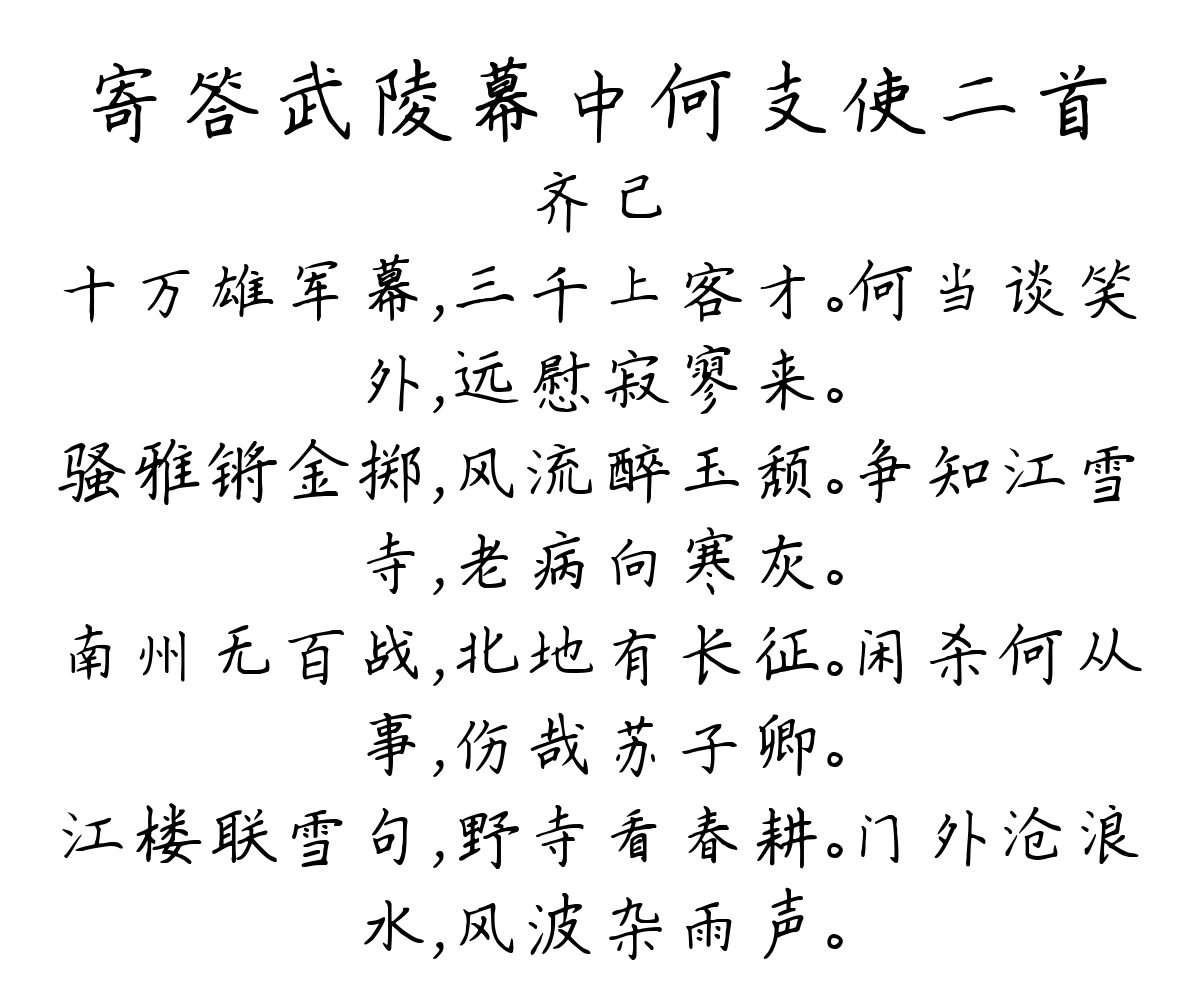 寄答武陵幕中何支使二首
齐己
十万雄军幕,三千上客才。何当谈笑
外,远慰寂寥来。
骚雅锵金掷,风流醉玉颓。争知江雪
寺,老病向寒灰。
南州无百战,北地有长征。闲杀何从
事,伤哉苏子卿。
江楼联雪句,野寺看春耕。门外沧浪
水,风波杂雨声。